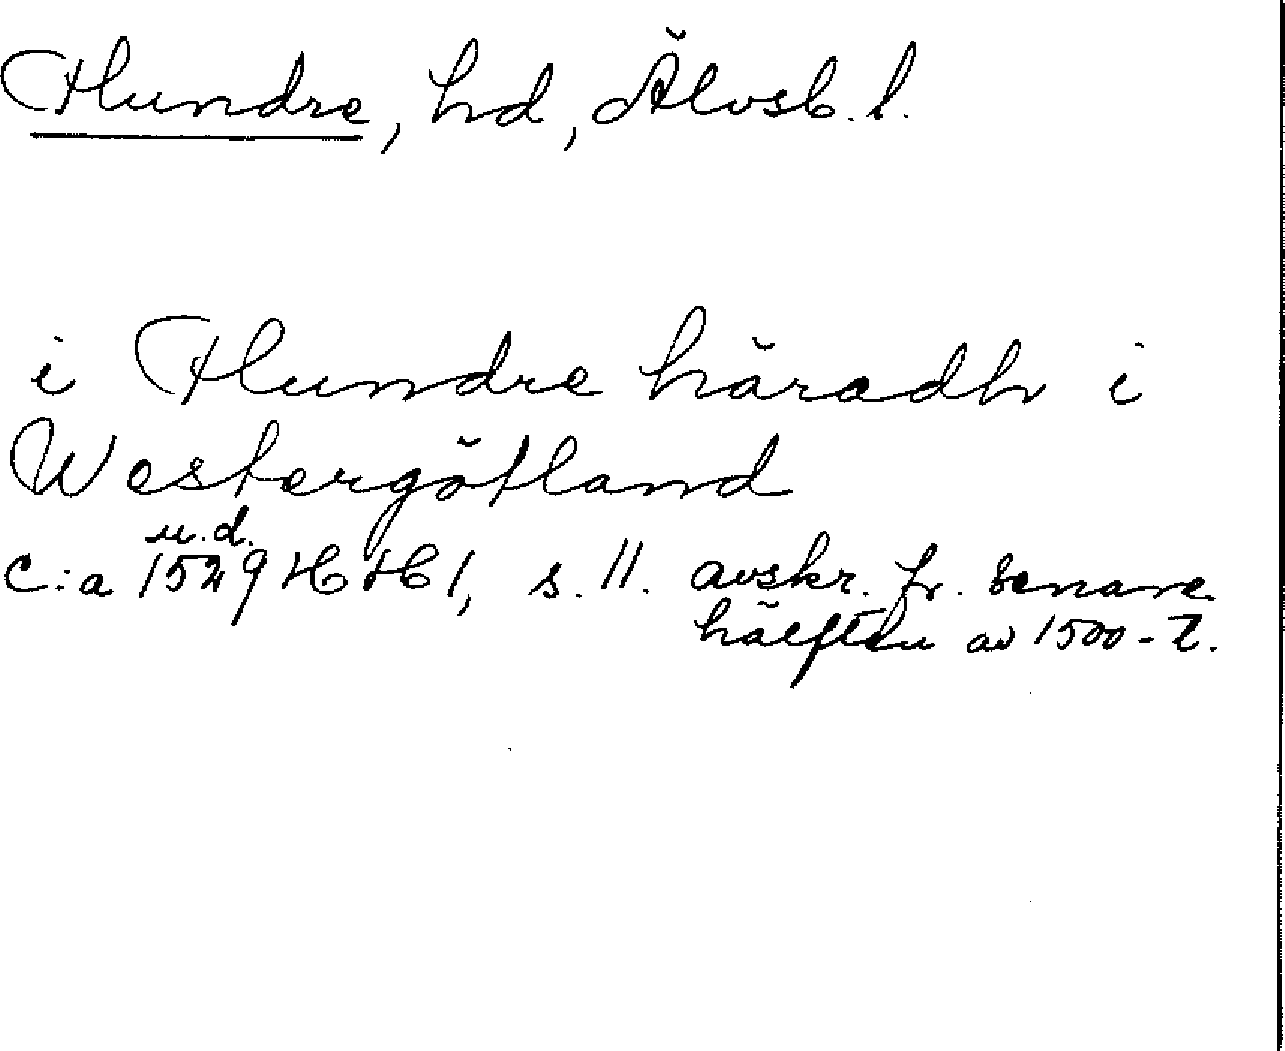 Hundre, hd, Älvsb. l.
i Hundre häradh i
Westergötland
u.d.
c:a 1529 HH 1, s. 11. avskr. fr. senare
hälften av 1500-t.